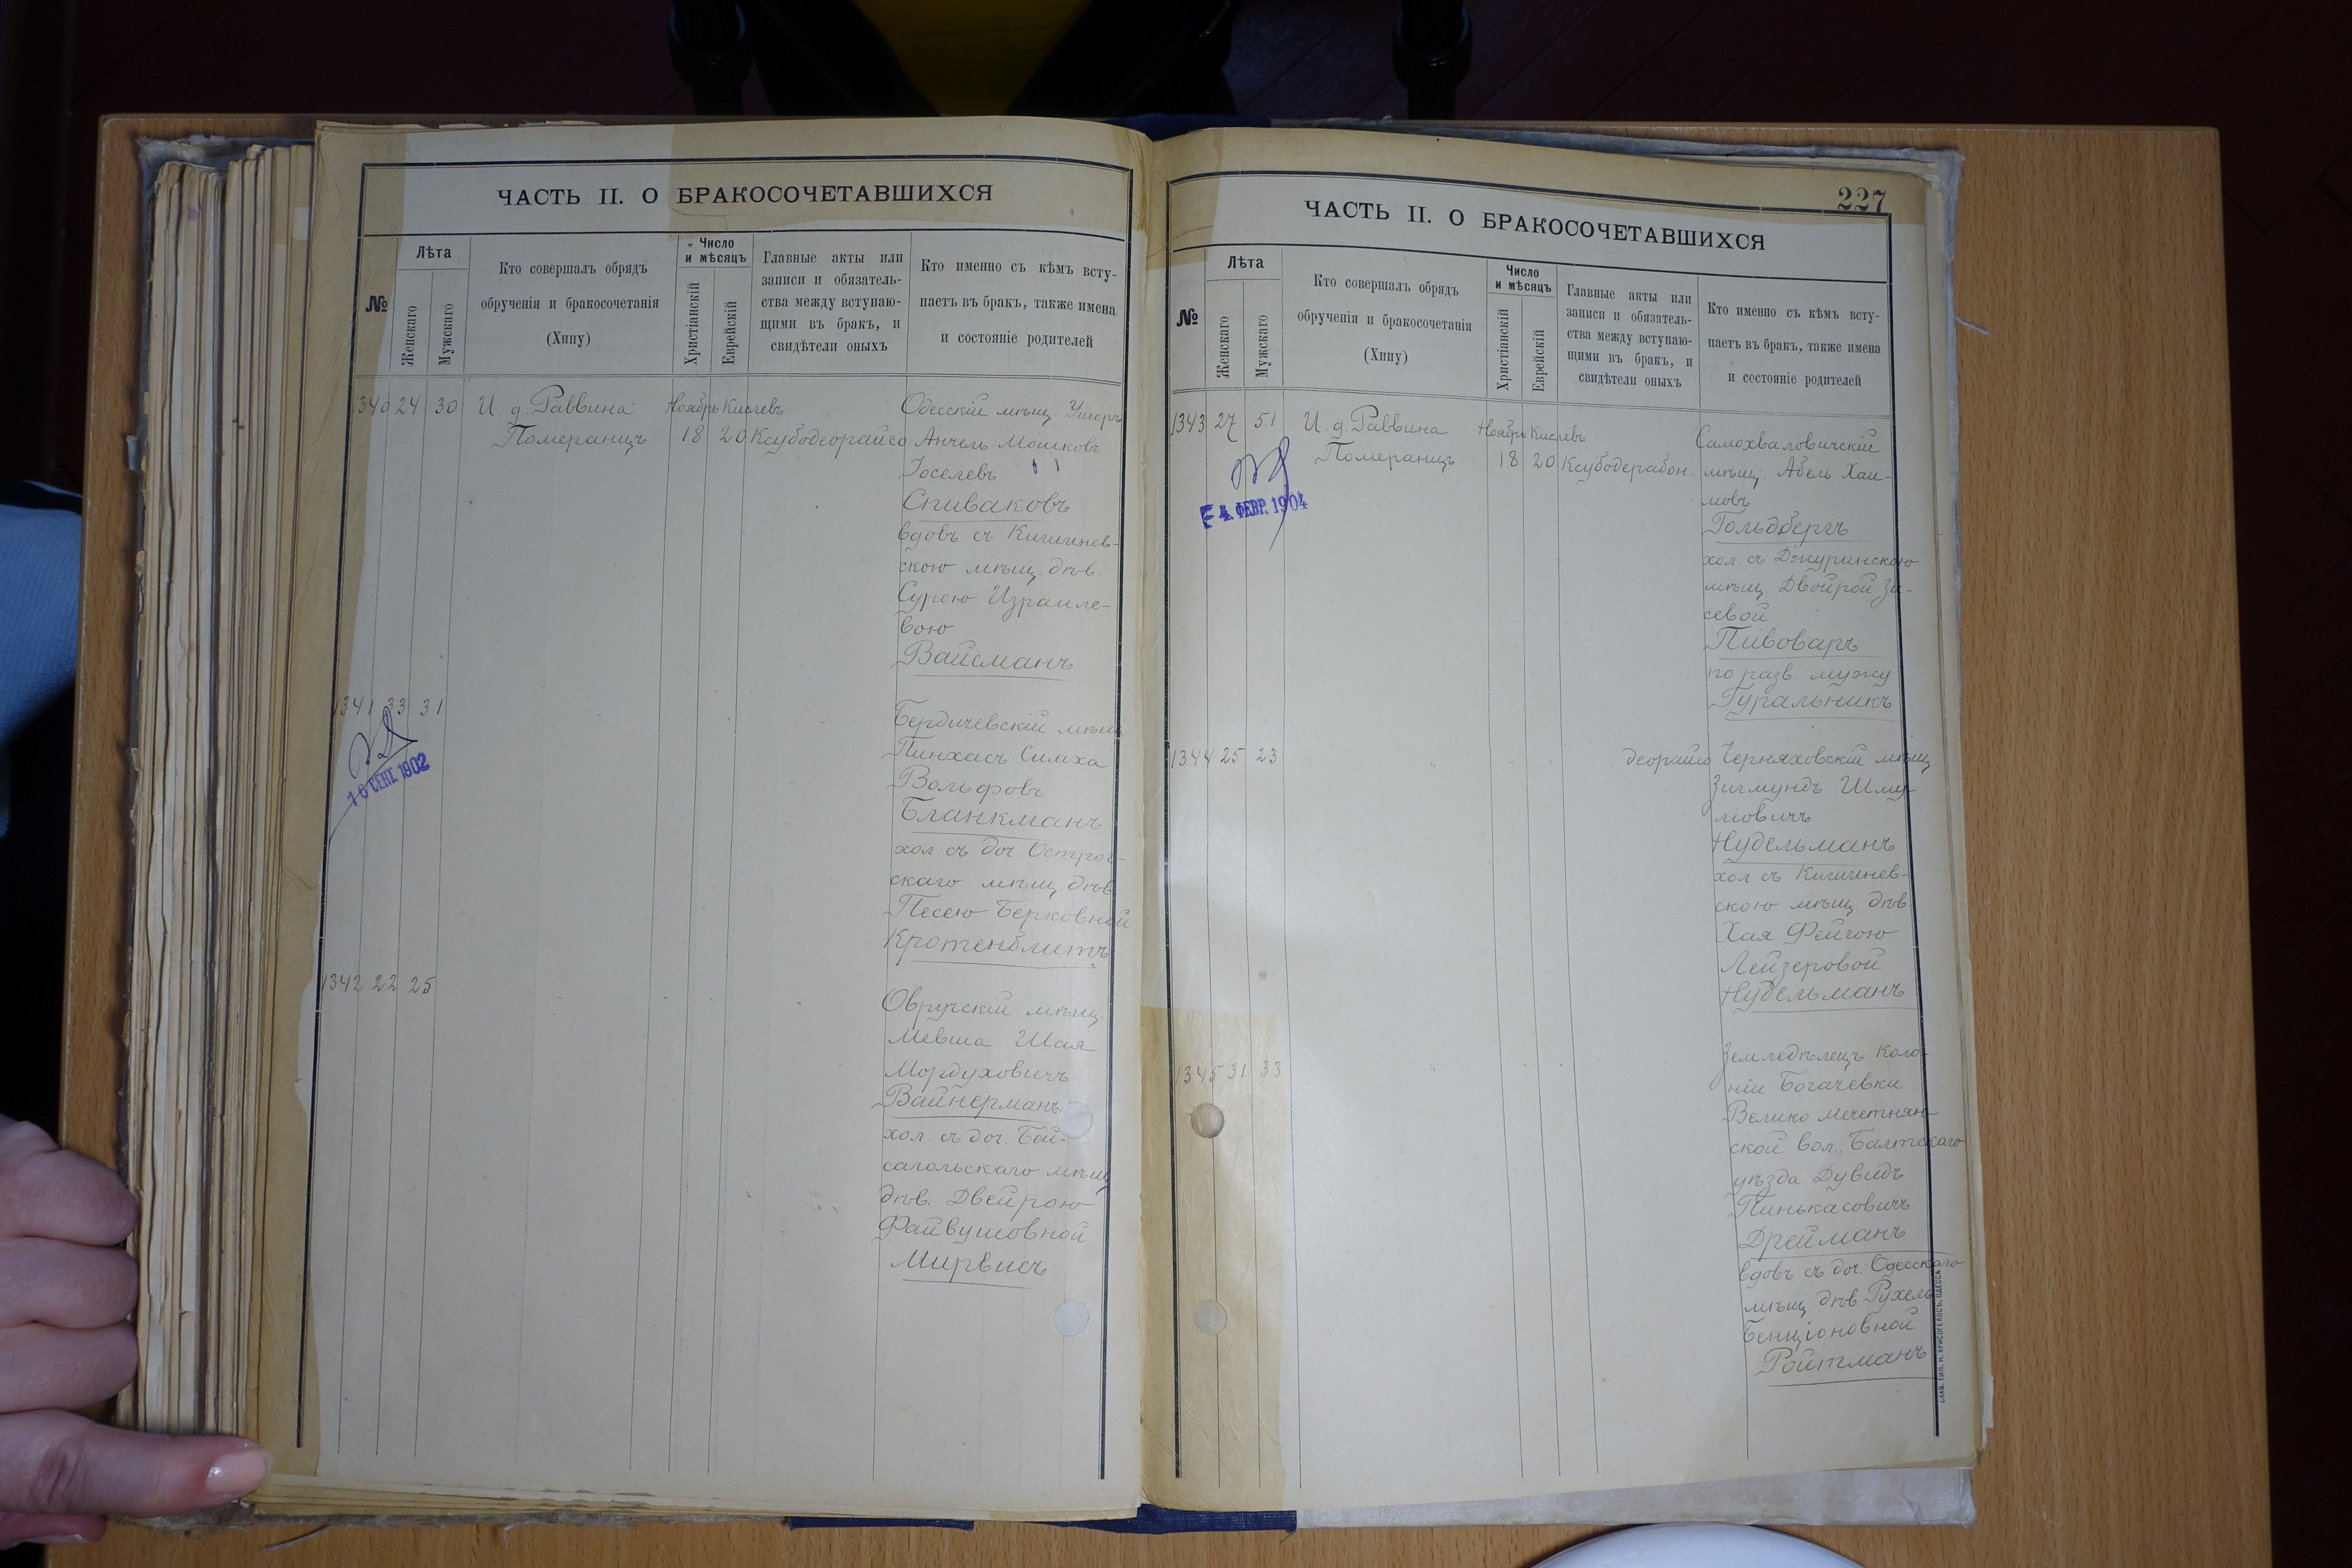 ЧАСТЬ II. О БРАКОСОЧЕТАВШИХСЯ
№
Лѣта
Женскаго
Мужскаго
Кто совершалъ обрядъ
обрученія и бракосочетанія
(Хипу)
Число
и мѣсяцъ
Христіанскій
Еврейскій
Главные акты или
записи и обязатель-
ства между вступаю-
щими въ бракъ, и
свидѣтели оныхъ
Кто именно съ кѣмъ всту-
паетъ въ бракъ, также имена
и состояніе родителей
1340 24 30
И. д. Раввина
Померанцъ
Ноябрь Кислевъ
18 20
Ксубодеорайсо
Одесскій мѣщ Ушеръ
Анчель Мошковъ
Іоселевъ
Спиваковъ
вдовъ съ Кишинев-
скою мѣщ. дѣв.
Сурою Израиле-
вою
Вайсманъ
1341 33 31
16 СЕНТ. 1902
Бердичевскій мѣщ
Пинхасъ Симха
Вольфовъ
Бланкманъ
хол. съ доч. Острог-
скаго мѣщ. дѣв.
Песею Берковной
Кротенблитъ
1342 22 25
Овручскій мѣщ.
Мевша Шая
Мордуховичъ
Вайнерманъ
хол. съ доч. Бей-
сагольскаго мѣщ
дѣв. Двейрою
Файвушовной
Мирвисъ
227
ЧАСТЬ II. О БРАКОСОЧЕТАВШИХСЯ
№
Лѣта
Женскаго
Мужскаго
Кто совершалъ обрядъ
обрученія и бракосочетанія
(Хипу)
Число
и мѣсяцъ
Христіанскій
Еврейскій
Главные акты или
записи и обязатель-
ства между вступаю-
щими въ бракъ, и
свидѣтели оныхъ
Кто именно съ кѣмъ всту-
паетъ въ бракъ, также имена
и состояніе родителей
1343 27 51
И. д. Раввина
Померанцъ
Ноябрь Кислевъ
18 20
Ксубодерабон.
4. ФЕВР. 1904
Самохваловичскій
мѣщ. Абель Хаи-
мовъ
Гольдбергъ
хол. съ Джуринскою
мѣщ Двойрой Зи-
севой
Пивоваръ
по разв. мужу
Гуральникъ
1344 25 23
деорайсо
Черняховскій мѣщ
Зигмундъ Шму-
ліовичъ
Нудельманъ
хол съ Кишинев-
скою мѣщ. дѣв.
Хая Фейгою
Лейзеровой
Нудельманъ
1345 31 33
Земледѣлецъ Коло-
ніи Богачевки
Велико мечетнян-
ской вол., Балтскаго
уѣзда Дувидъ
Пинькасовичъ
Дрейманъ
вдовъ съ доч. Одесскаго
мѣщ. дѣв. Рухель
Бенціоновной
Ройтманъ
СЛАВ. ТИП. Н. ХРИСОГЕЛОСЪ, ОДЕССА